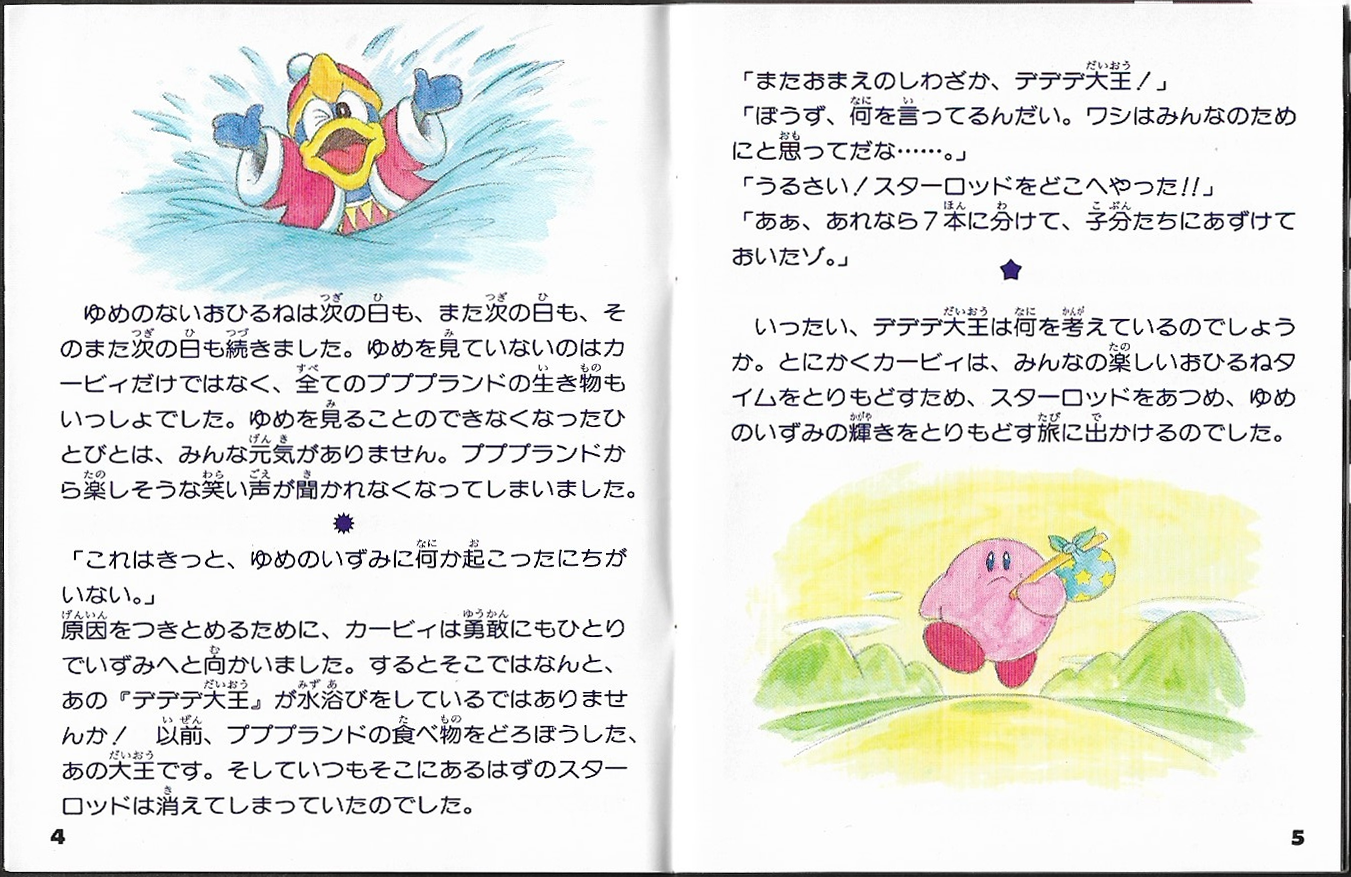 ゆめのないおひるねは次の日も、また次の日も、そ
のまた次の日も続きました。ゆめを見ていないのはカ
ービィだけではなく、全てのプププランドの生き物も
いっしょでした。ゆめを見ることのできなくなったひ
とびとは、みんな元気がありません。プププランドか
ら楽しそうな笑い声が聞かれなくなってしまいました。
「これはきっと、ゆめのいずみに何か起こったにちが
いない。」
原因をつきとめるために、カービィは勇敢にもひとり
でいずみへと向かいました。するとそこではなんと、
あの『デデデ大王』が水浴びをしているではありませ
んか! 以前、プププランドの食べ物をどろぼうした、
あの大王です。そしていつもそこにあるはずのスター
ロッドは消えてしまっていたのでした。
4
「またおまえのしわざか、デデデ大王!」
「ぼうず、何を言ってるんだい。ワシはみんなのため
にと思ってだな……。」
「うるさい!スターロッドをどこへやった!!」
「あぁ、あれなら7本に分けて、子分たちにあずけて
おいたゾ。」
いったい、デデデ大王は何を考えているのでしょう
か。とにかくカービィは、みんなの楽しいおひるねタ
イムをとりもどすため、スターロッドをあつめ、ゆめ
のいずみの輝きをとりもどす旅に出かけるのでした。
5